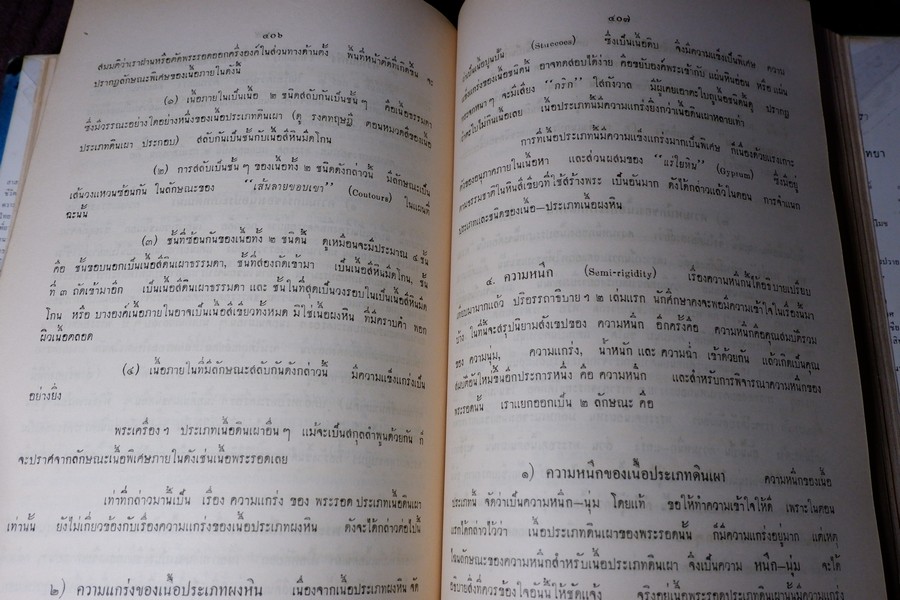 ๔๐๖
สมมติว่าเราผ่านหรือตัดพระรอดออกครึ่งองค์ในส่วนทางด้านตั้ง พื้นที่หน้าตัดที่เกิดขึ้น จะ
ปรากฏลักษณะพิเศษของเนื้อภายในดังนี้
(๑) เนื้อภายในเป็นเนื้อ ๒ ชนิดสลับกันเป็นชั้น ๆ คือเนื้อธรรมดา
ซึ่งมีวรรณะอย่างใดอย่างหนึ่งของเนื้อประเภทดินเผา (ดู รงคทฤษฎี ตอนหมวดสีของเนื้อ
ประเภทดินเผา ประกอบ) สลับกันเป็นชั้นกับเนื้อสีหินมีดโกน
(๒) การสลับเป็นชั้น ๆ ของเนื้อทั้ง ๒ ชนิดดังกล่าวนี้ มีลักษณะเป็น
เส้นวงแหวนซ้อนกัน ในลักษณะของ "เส้นลายขอบเขา" (Coutours) ในแผนที่
ฉะนั้น
(๓) ชั้นที่ซ้อนกันของเนื้อทั้ง ๒ ชนิดนี้ ดูเหมือนจะมีประมาณ ๔ ชั้น
คือ ชั้นขอบนอกเป็นเนื้อสีดินเผาธรรมดา, ชั้นที่สองถัดเข้ามา เป็นเนื้อสีหินมีดโกน, ชั้น
ที่ ๓ ถัดเข้ามาอีก เป็นเนื้อสีดินเผาธรรมดา และ ชั้นในที่สุดเป็นวงรอบในเป็นเนื้อสีหินมีด
โกน หรือ บางองค์เนื้อภายในอาจเป็นเนื้อสีเขียวทั้งหมด มิใช่เนื้อผงหิน ที่มีคราบดำ พอก
ผิวเนื้อตลอด
(๔) เนื้อภายในที่มีลักษณะสลับกันดังกล่าวนี้ มีความแข็งแกร่งเป็น
อย่างยิ่ง
พระเครื่อง ฯ ประเภทเนื้อดินเผาอื่น ๆ แม้จะเป็นสกุลลำพูนด้วยกัน ก็
จะปราศจากลักษณะเนื้อพิเศษภายในดังเช่นเนื้อพระรอดเลย
เท่าที่กล่าวมานี้เป็น เรื่อง ความแกร่ง ของ พระรอด ประเภทเนื้อดินเผา
เท่านั้น ยังไม่เกี่ยวข้องกับเรื่องความแกร่งของเนื้อประเภทผงหิน ดังจะได้กล่าวต่อไปนี้
๒) ความแกร่งของเนื้อประเภทผงหิน เนื่องจากเนื้อประเภทผงหิน จัด
๔๐๗
เป็นเนื้อปูนปั้น (Stuccoes) ซึ่งเป็นเนื้อดิบ จึงมีความแข็งเป็นพิเศษ ความ
แข็งแกร่งของเนื้อชนิดนี้ อาจทดสอบได้ง่าย คือขยับองค์พระเข้ากับ แผ่นหินอ่อน หรือ แผ่น
กระจกหนา ๆ จะมีเสียง "กริก" ใสกังวาล มีผู้เคยเอาตะไบถูเนื้อชนิดนี้ดู ปรากฏ
ว่าตะไบไม่กินเนื้อเลย เนื้อประเภทนี้มีความแกร่งยิ่งกว่าเนื้อดินเผาหลายเท่า
การที่เนื้อประเภทนี้มีความแกร่งมากเป็นพิเศษ ก็เนื่องด้วยแรงเกาะ
ตัวของอนุภาคภายในเนื้อหา และส่วนผสมของ "แร่ใยหิน" (Gyprum) ซึ่งมีอยู่
ตามธรรมชาติในหินสีเขียวที่ใช้สร้างพระ เป็นอันมาก ดังได้กล่าวแล้วในตอน การจำแนก
ประเภทและชนิดของเนื้อ—ประเภทเนื้อผงหิน
๔. ความหนึก (Semi-rigidity) เรื่องความหนึกนี้ได้อธิบายเปรียบ
เทียบมามากแล้ว ปริอรรถาธิบาย ฯ ๒ เล่มแรก นักศึกษาคงจะพอมีความเข้าใจในเรื่องนี้มา
บ้าง ในที่นี้จะสรุปนิยามสังเขปของ ความหนึก อีกครั้งคือ ความหนึกคือคุณสมบัติรวม
ของ ความนุ่ม, ความแกร่ง, น้ำหนัก และ ความฉ่ำ เข้าด้วยกัน แล้วเกิดเป็นคุณ
สมบัติอันใหม่ขึ้นอีกประการหนึ่ง คือ ความหนึก และสำหรับการพิจารณาความหนึกของ
พระรอดนั้น เราแยกออกเป็น ๒ ลักษณะ คือ
๑) ความหนึกของเนื้อประเภทดินเผา ความหนึกของเนื้อ
ประเภทนี้ จัดว่าเป็นความหนึก—นุ่ม โดยแท้ ขอให้ทำความเข้าใจให้ดี เพราะในตอน
แรกได้กล่าวไว้ว่า เนื้อประเภทดินเผาของพระรอดนั้น ก็มีความแกร่งอยู่มาก แต่เหตุ
ไฉนลักษณะของความหนึกสำหรับเนื้อประเภทดินเผา จึงเป็นความ หนึก—นุ่ม จะได้
อธิบายสิ่งที่ควรข้องใจอันนี้ให้ชัดแจ้ง จริงอยู่เนื้อพระรอดประเภทดินเผานั้นมีความแกร่ง